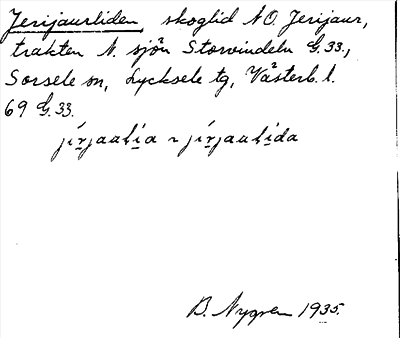 Jerijaurliden, skoglid NO. Jerijaur,
trakten N. sjön Storvindeln G.33.,
Sorsele sn, Lycksele tg, Västerb. l.
69 G.33.
jírjaaləia ~ jírjaaləida
B. Nygren 1935.